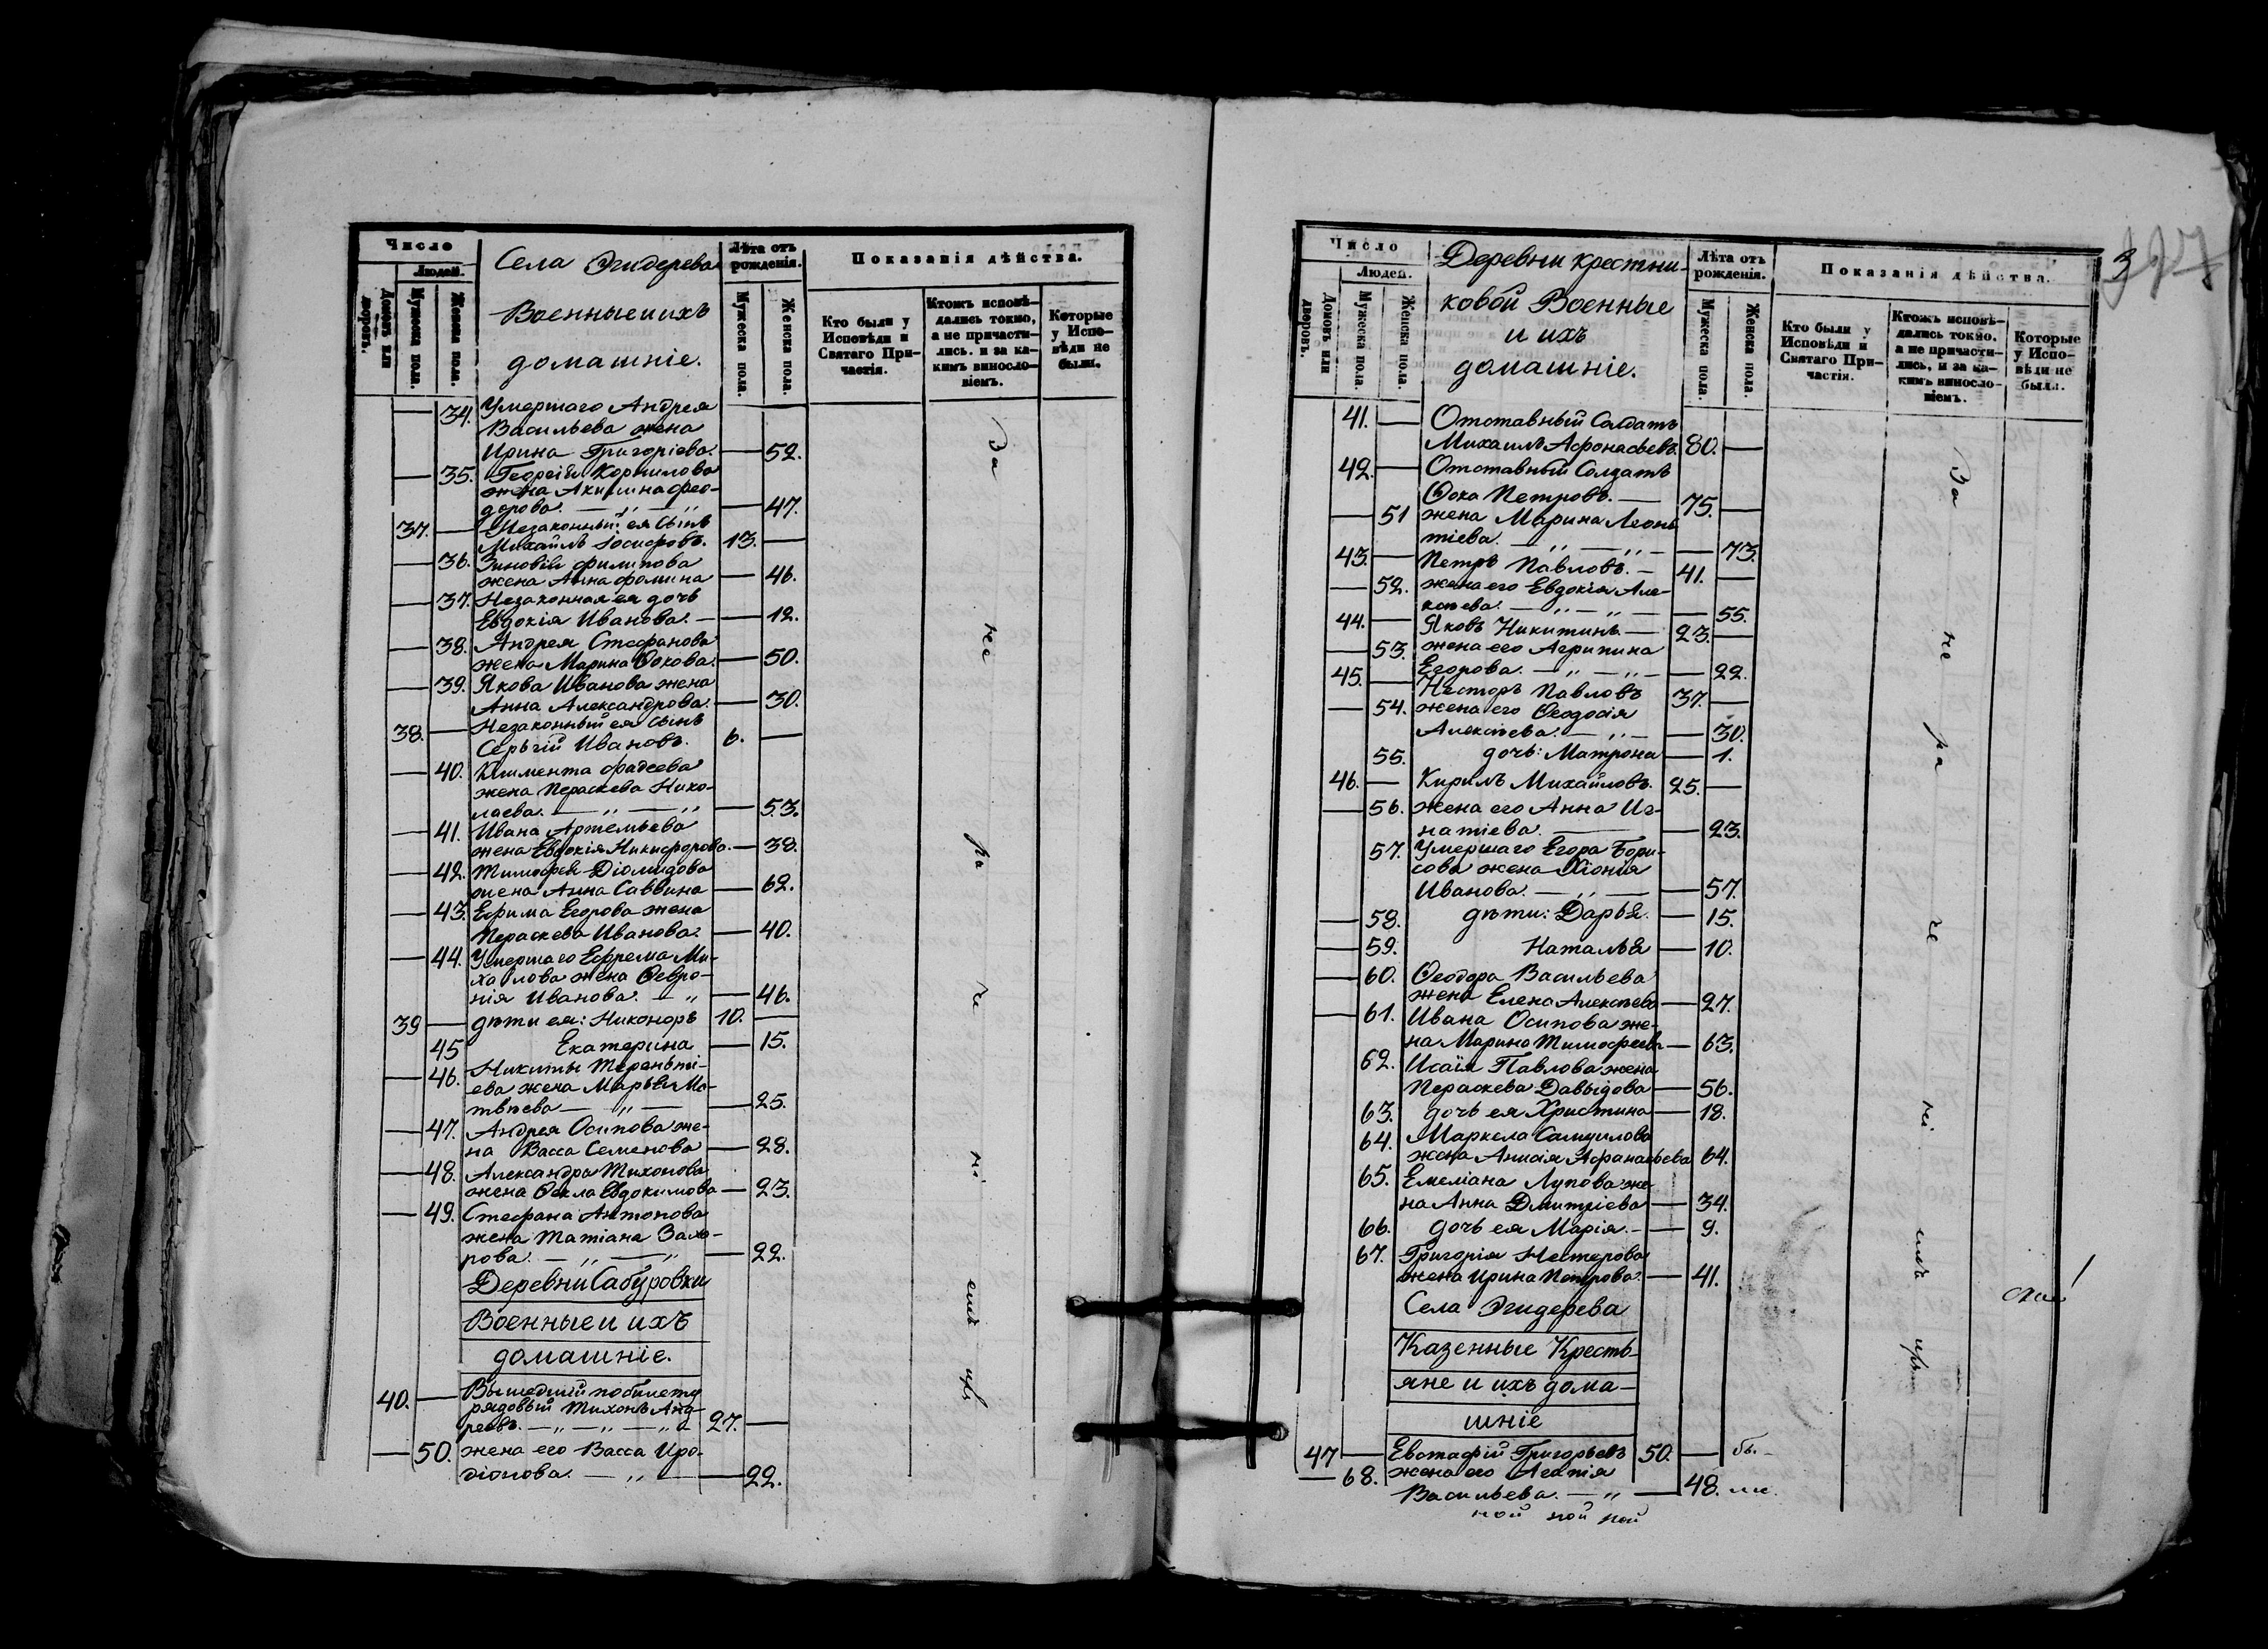 Число
Людей.
Домовъ или дворовъ.
Мужеска пола.
Женска пола.
Села Эгидерева
Военные и ихъ
домашніе.
Лѣта отъ рожденія.
Мужеска пола.
Женска пола.
Показанія дѣйства.
Кто были у Исповѣди и Святаго При-частія.
Ктожъ исповѣ-дались токмо, а не причасти-лись. и за ка-кимъ винослo-віемъ.
Которые у Испо-вѣди не были.
— 34. Умершаго Андрея
Васильева жена
Ирина Григоріева. — 52.
— 35. Георгія Корнилова
жена Акилина Фео-
дорова. — „ — „ — 47.
37. — Незаконный ея сынъ
Михаилъ Іосифовъ. 13. —
— 36. Зиновія Филипова
жена Анна Фомина — 46.
— 37. Незаконная ея дочь
Евдокія Иванова. — — 12.
— 38. Андрея Стефанова
жена Марина Фокова. — 50.
— 39. Якова Иванова жена
Анна Александрова. — 30.
38. — Незаконный ея сынъ
Сергій Ивановъ. 6. —
— 40. Климента Фадеева
жена Пераскева Нико-
лаева. — „ — „ — 53.
— 41. Ивана Артемьева
жена Евдокія Никифорова. — 38.
— 42. Тимофея Діомидова
жена Анна Саввина — 62.
— 43. Ефима Егорова жена
Пераскева Иванова. — 40.
— 44. Умершаго Ефрема Ми-
хайлова жена Февро-
нія Иванова. — „ — 46.
39 — дѣти ея: Никоноръ 10. —
45 Екатерина — 15.
— 46. Никиты Терентьі-
ева жена Марья Ма-
твѣева — „ — — 25.
— 47. Андрея Осипова же-
на Васса Семенова — 28.
— 48. Александра Тихонова
жена Фекла Евдокимова — 23.
— 49. Стефана Антонова
жена Татіана Заха-
рова. — „ — „ — 22.
Деревни Сабуровки
Военные и ихъ
домашніе.
40. — Вышедшій по билету
рядовый Тихонъ Анд-
реевъ. — „ — „ — „ — 27. —
— 50. жена его Васса Иро-
діонова. — „ — — 22.
За не ра че ні емъ
Число
Людей.
Домовъ или дворовъ.
Мужеска пола.
Женска пола.
Деревни Крестни-
ковой Военные
и ихъ
домашніе.
Лѣта отъ рожденія.
Мужеска пола.
Женска пола.
Показанія дѣйства.
Кто были у Исповѣди и Святаго При-частія.
Ктожъ исповѣ-дались токмо. а не причасти-лись, и за ка-кимъ винослo-віемъ.
Которые у Испо-вѣди не были.
41. — Отставный Солдатъ
Михаилъ Афонасьевъ. 80. —
42. — Отставный Солдатъ
Фока Петровъ. — 75. —
— 51 жена Марина Леонь
тіева. — „ — „ — — 73.
43. — Петръ Павловъ. — 41. —
— 52. жена его Евдокія Але-
ксѣева. — „ — „ — 55.
44. — Яковъ Никитинъ — 23. —
— 53. жена его Агрипина
Егорова. — „ — „ — — 22.
45. — Несторъ Павловъ 37. —
— 54. жена его Феодосія
Алексѣева. — „ — — 30.
55. дочь: Матрона — 1.
46. — Кирилъ Михайловъ. 25. —
— 56. жена его Анна Иг-
натіева. — — 23.
57. Умершаго Егора Бори-
сова жена Хіонія
Иванова. — „ — — 57.
— 58. дѣти: Дарья. — 15.
— 59. Наталья — 10.
— 60. Феодора Васильева
жена Елена Алексѣева — 27.
— 61. Ивана Осипова же-
на Марина Тимофеева — 63.
62. Исаія Павлова жена
Пераскева Давыдова — 56.
63. дочь ея Христина — 18.
64. Маркела Самуилова
жена Анисія Афанасьева 64.
65. Емеліана Лупова же-
на Анна Дмитріева — 34.
66. дочь ея Марія. — — 9.
67. Григорія Нестерова
жена Ирина Петрова. — 41.
Села Эгидерева
Казенные Кресть-
яне и ихъ дома-
шніе
47 — Евстафій Григорьевъ 50. — бы-
— 68. жена его Агапія
Васильева. — „ — 48. ли.
ной ной ной
За не ра че ні емъ